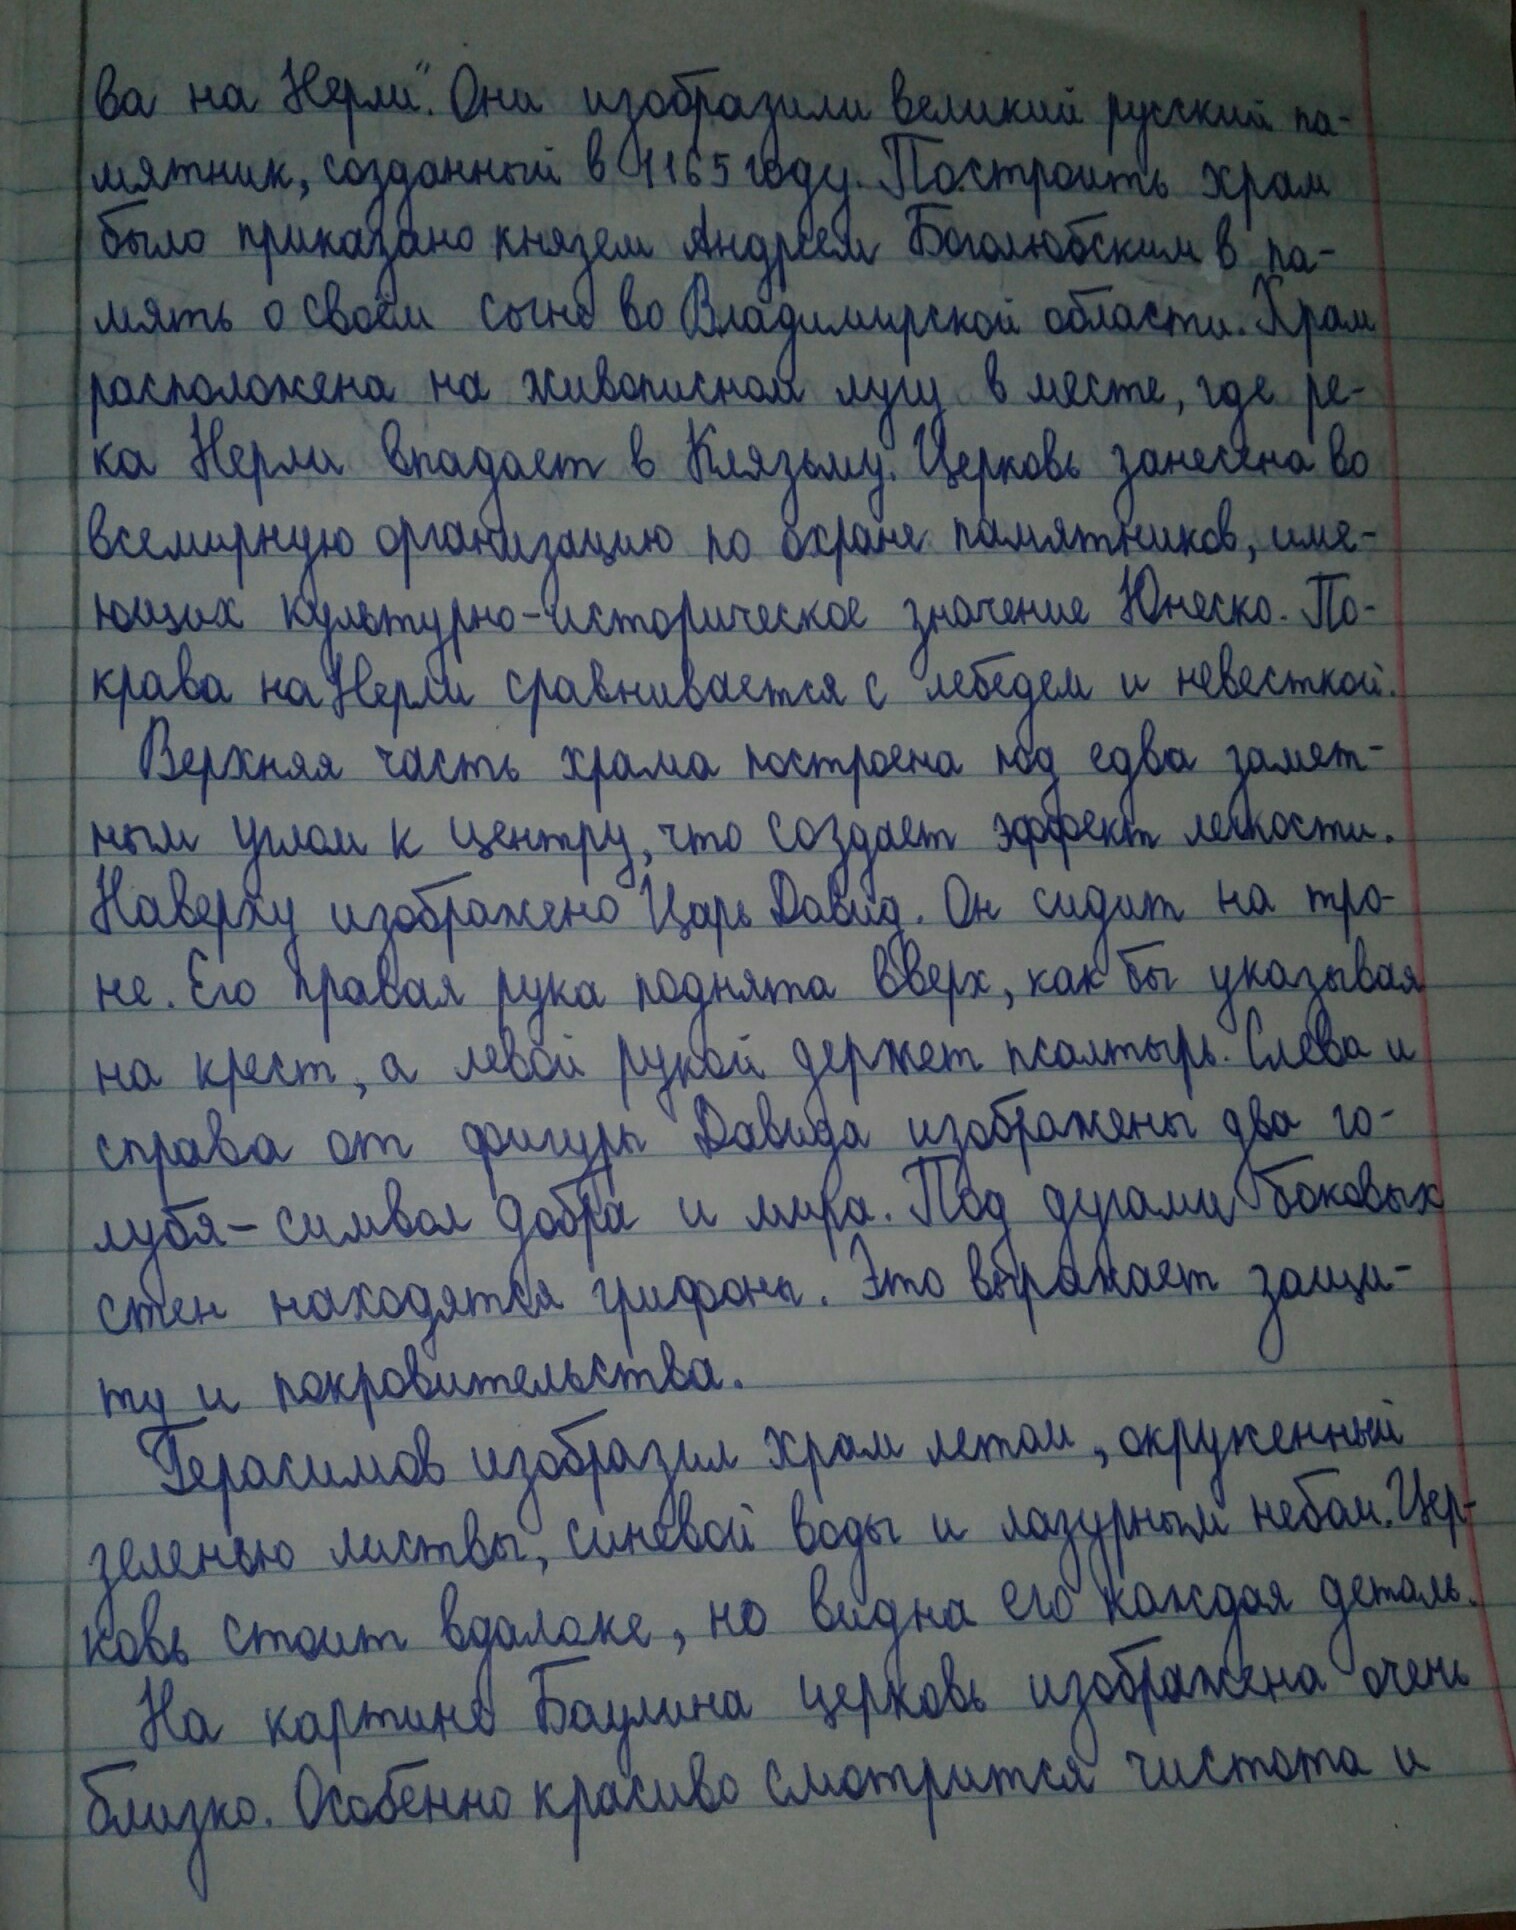 ва на Нерли". Они изобразили великий русский па-
мятник, созданный в 1165 году. Построить храм
было приказано князем Андреем Боголюбским в па-
мять о своём сыне во Владимирской области. Храм
расположена на живописном лугу в месте, где ре-
ка Нерли впадает в Клязьму. Церковь занесена во
всемирную организацию по охране памятников, име-
ющих культурно-историческое значение Юнеско. По-
крава на Нерли сравнивается с лебедем и невесткой.
Верхняя часть храма построена под едва замет-
ным углом к центру, что создает эффект легкости.
Наверху изображено Царь Давид. Он сидит на тро-
не. Его правая рука поднята вверх, как бы указывая
на крест, а левой рукой держет псалтырь. Слева и
справа от фигуры Давида изображены два го-
лубя – символ добра и мира. Под дугами боковых
стен находятся грифоны. Это выражает защи-
ту и покровительства.
Герасимов изобразил храм летом, окруженный
зеленью листвы, синевой воды и лазурным небом. Цер-
ковь стоит вдалеке, но видна его каждая деталь.
На картине Баулина церковь изображена очень
близко. Особенно красиво смотрится чистота и